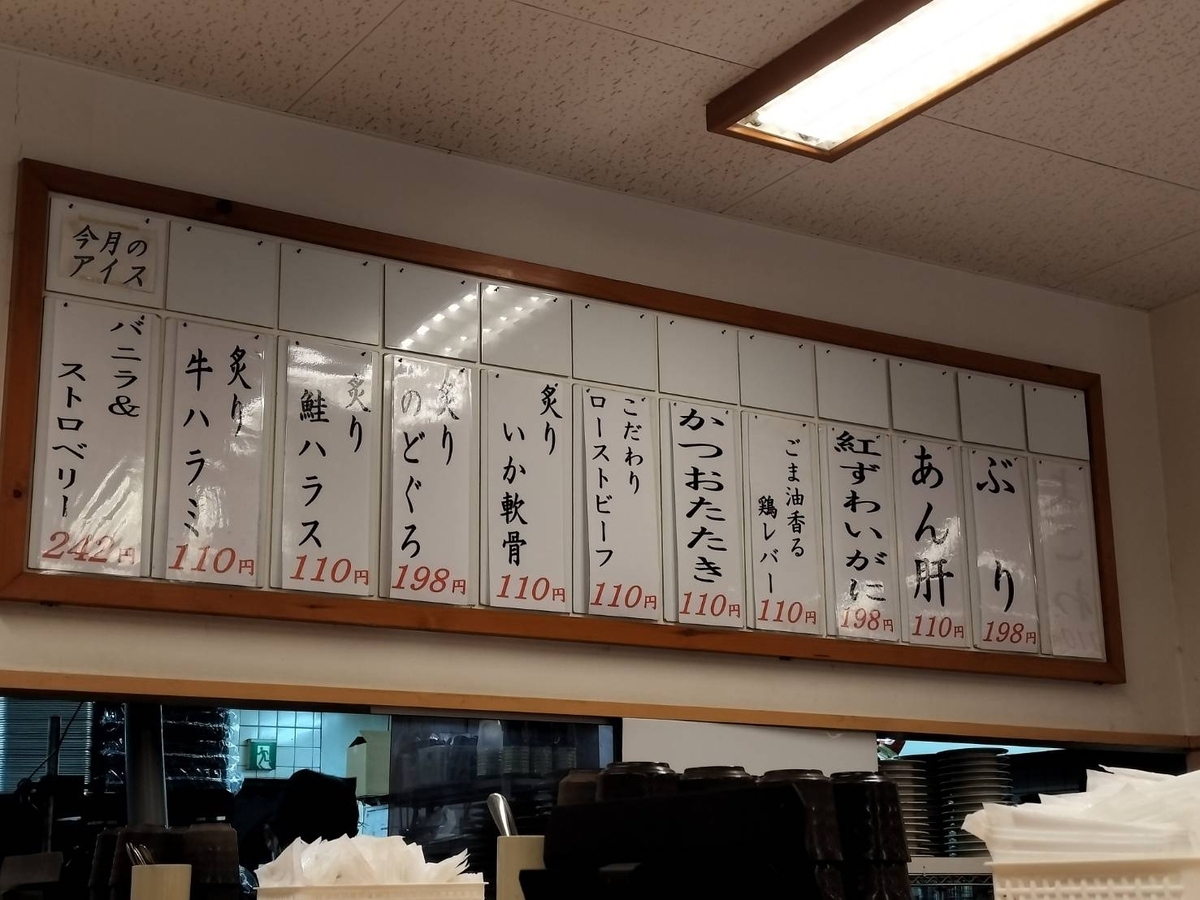 ぶり
198円
あん肝
110円
紅ずわいがに
198円
ごま油香る
鶏レバー
110円
かつおたたき
110円
こだわり
ローストビーフ
110円
炙り
いか軟骨
110円
炙り
のどぐろ
198円
炙り
鮭ハラス
110円
炙り
牛ハラミ
110円
今月の
アイス
バニラ&
ストロベリー
242円